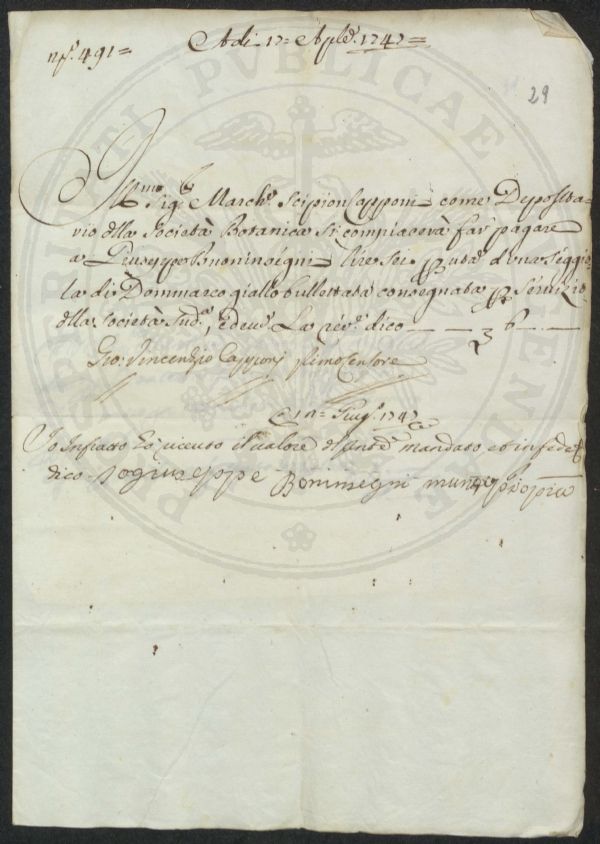 Adi 17 = Aple. 1747 =
n°. 491 =
29
Illmo. Sige. March. Scipion Capponi come Deposita-
rio della Società Botanica Si compiacerà far pagare
a Giuseppo Buoninsegni lire sei valuta d'una seggio-
la di Dommasco giallo bullettata consegnata Servizio
della Società Suda., ed eus. La rèv. dico — — 3 6. —
Gio: Vincenzio Capponi Primo Censore
Giug. 1747
Io Infratto hò riceuto il valore del sudo. mandato et in fede
dico Io giuseppe Boninsegni mano propria
PUBLICAE